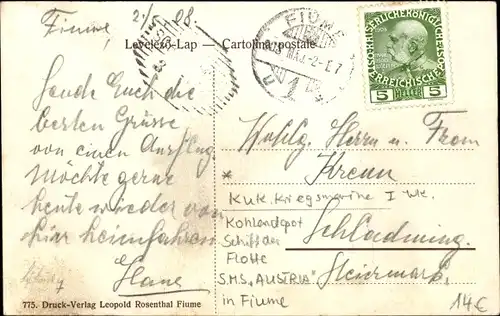 Fiume, 2/ 08.
Levelező-Lap — Cartolina postale
FIUME
KAISERLICHE KÖNIGLICHE
ÖSTERREICHISCHE
5 HELLER 5
Sende Euch die
besten Grüsse
von einen Ausflug.
Möchte gerne
heute wieder von
hier heimfahren
Hans
Wohlg. Herrn u. Frau
Krenn
K.u.K. Kriegsmarine I Wk.
Kohlendepot
Schladming
Schiff der
Flotte
Steiermark
S.M.S. „AUSTRIA"
in Fiume
775. Druck-Verlag Leopold Rosenthal Fiume
14€